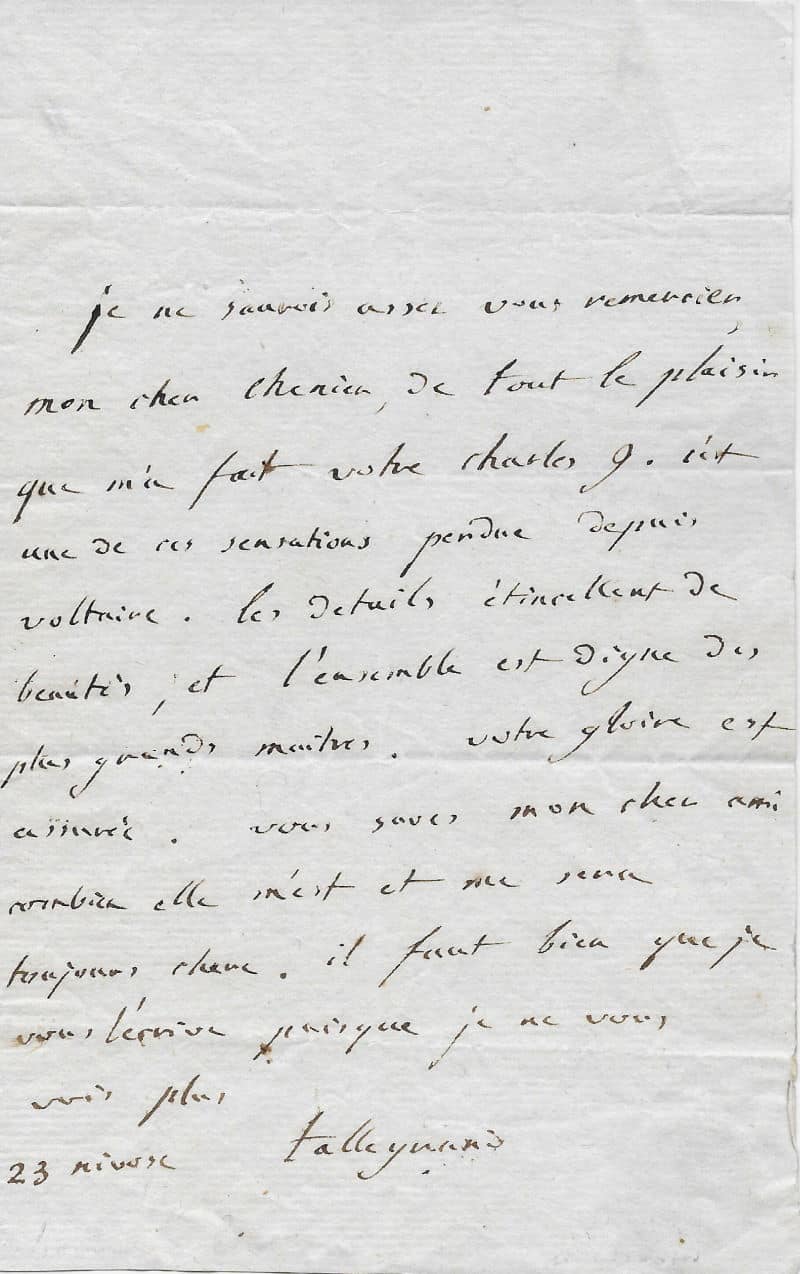 je ne saurois assez vous remercier,
mon cher chenier, de tout le plaisir
que m'a fait votre charles 9. c'est
une de ces sensations perdue depuis
voltaire. les details étincellent de
beautés, et l'ensemble est digne des
plus grands maitres. votre gloire est
assurée. vous savez mon cher ami
combien elle m'est et me sera
toujours chere. il faut bien que je
vous l'écrive puisque je ne vous
vois plus
23 nivose talleyrand